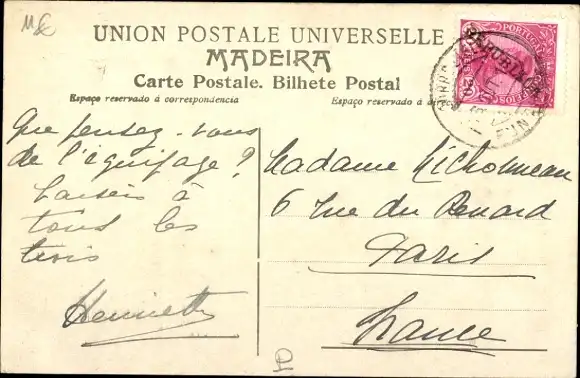 UNION POSTALE UNIVERSELLE
MADEIRA
Carte Postale. Bilhete Postal
Espaço reservado á correspondencia
Espaço reservado á
PORTUGAL
REPUBLICA
Que pensez-vous
de l'équipage ?
baisers à
tous les
trois
Henriette
Madame
6 rue du Renard
Paris
France